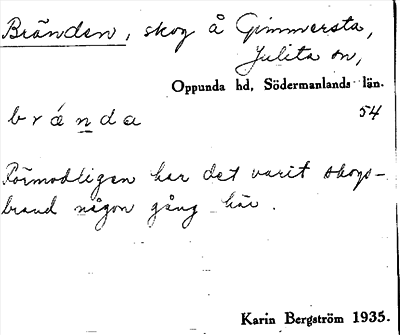 Bränden, skog å Gimmersta,
Julita sn,
Oppunda hd, Södermanlands län.
b r ǻ n d a 54
Förmodligen har det varit skogs-
brand någon gång här.
Karin Bergström 1935.